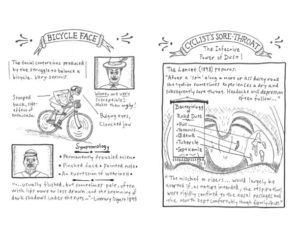 BICYCLE FACE
The facial contortions produced
by the struggle to balance a
bicycle. Very serious.
Women are very
susceptible!
Makes them ugly!
Stooped
back, side-
effect of
enthusiasm
Bulging eyes,
Clenched jaw
Symptomology
• Permanently frowning
• Pinched face • Pointed nose
• An expression of weariness
"... usually flushed, but sometimes pale, often
with lips more or less drawn, and the beginning of
dark shadows under the eyes..." - Literary Digest 1895
CYCLIST'S SORE-THROAT
The Infective
Power of Dust!
The Lancet (1898) reports:
"After a 'spin' along a more or less dirty road
the cyclist sometimes experiences a dry and
subsequently sore throat. Headache and depression
often follow..."
Bacteriology
of
Road Dust
• Pus
• Tetanus
• Tubercle
• Septicaemia
"The mischief to riders... would largely be
averted if, as nature intended, the respiration
were rigidly confined to the nasal passages and
the mouth kept comfortably though firmly shut."